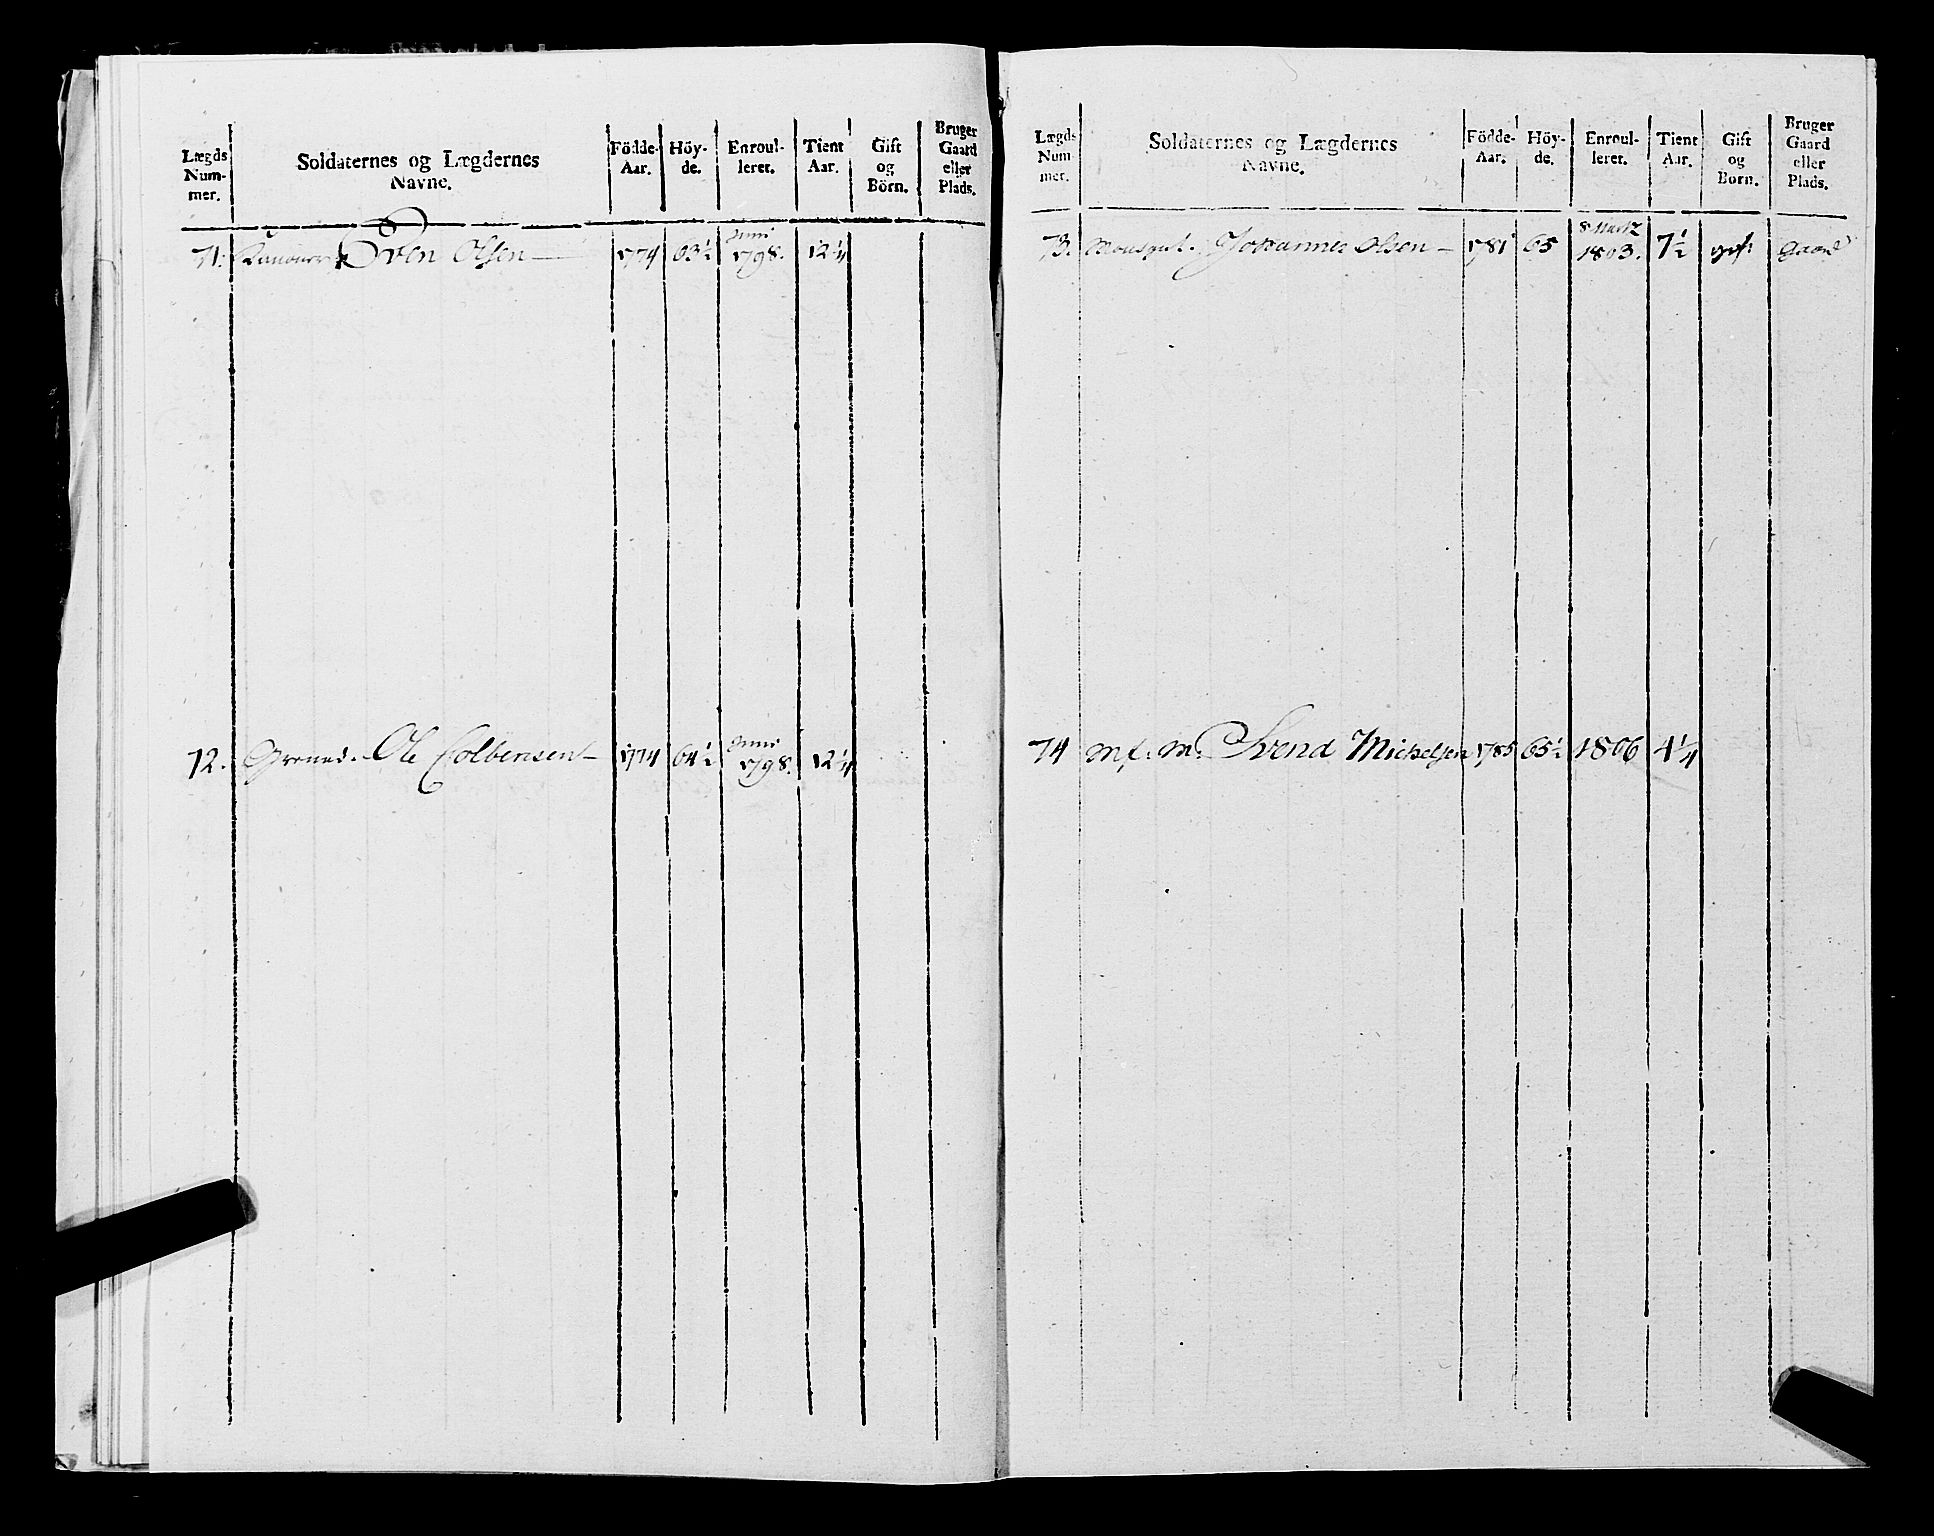 Lægds Num- mer. | Soldaternes og Lægdernes Navne. | Födde- Aar. | Höy- de. | Enroul- leret. | Tient Aar. | Gift og Börn. | Bruger Gaard eller Plads.
71. Sven Olsen — 1774 63½ Juni 1798. 12¼
72. Grenad. Ole Colbensen — 1774 64½ Juni 1798. 12¼
Lægds Num- mer. | Soldaternes og Lægdernes Navne. | Födde- Aar. | Höy- de. | Enroul- leret. | Tient Aar. | Gift og Born. | Bruger Gaard eller Plads.
73. Mousqut. Johannes Olsen — 1781 65 8 Martz 1803. 7½ gift Gaard
74 Svend Michelsen 1785 65½ 1806 4¼